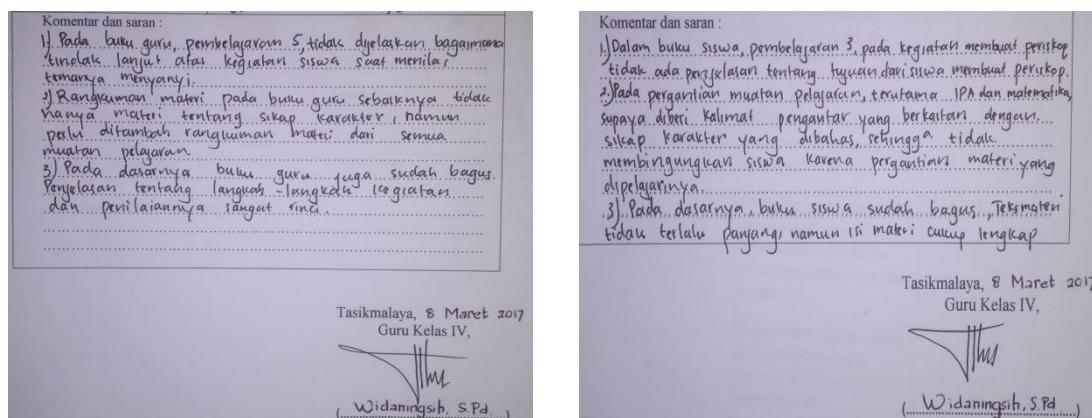 Komentar dan saran :
1) Pada buku guru, pembelajaran 5, tidak dijelaskan bagaimana
tindak lanjut atas kegiatan siswa saat menilai
temanya menyanyi.
2) Rangkuman materi pada buku guru sebaiknya tidak
hanya materi tentang sikap karakter, namun
perlu ditambah rangkuman materi dari semua
muatan pelajaran
3) Pada dasarnya buku guru juga sudah bagus.
Penjelasan tentang langkah-langkah kegiatan
dan penilaiannya sangat rinci.
Tasikmalaya, 8 Maret 2017
Guru Kelas IV,
( Widaningsih, S.Pd )
Komentar dan saran :
1.) Dalam buku siswa, pembelajaran 3, pada kegiatan membuat periskop
tidak ada penjelasan tentang tujuan dari siswa membuat periskop.
2.) Pada pergantian muatan pelajaran, terutama IPA dan matematika,
supaya diberi kalimat pengantar yang berkaitan dengan
sikap karakter yang dibahas, sehingga tidak
membingungkan siswa karena pergantian materi yang
dipelajarinya.
3) Pada dasarnya, buku siswa sudah bagus, Teks materi
tidak terlalu panjang, namun isi materi cukup lengkap
Tasikmalaya, 8 Maret 2017
Guru Kelas IV,
( Widaningsih, S.Pd )